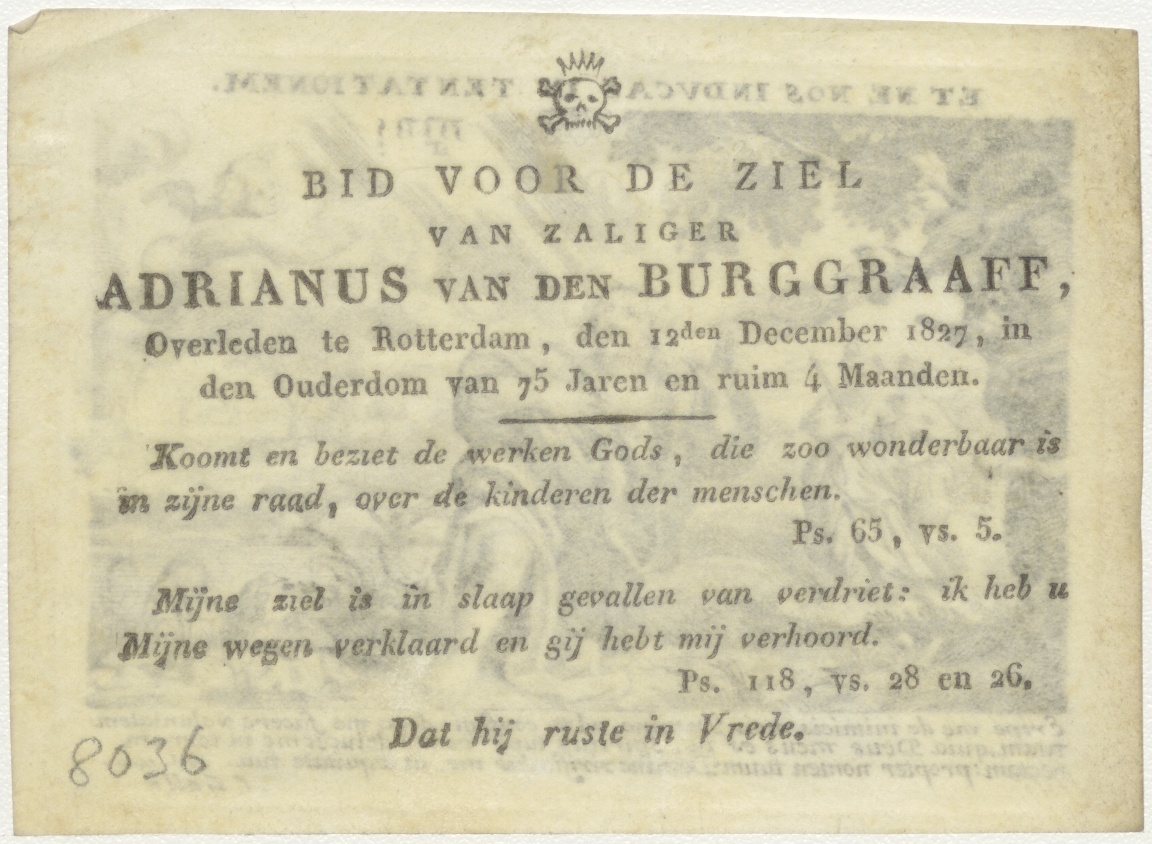 BID VOOR DE ZIEL
VAN ZALIGER
ADRIANUS VAN DEN BURGGRAAFF,
Overleden te Rotterdam, den 12den December 1827, in
den Ouderdom van 75 Jaren en ruim 4 Maanden.
Koomt en beziet de werken Gods, die zoo wonderbaar is
in zijne raad, over de kinderen der menschen.
Ps. 65, vs. 5.
Mijne ziel is in slaap gevallen van verdriet: ik heb u
Mijne wegen verklaard en gij hebt mij verhoord.
Ps. 118, vs. 28 en 26.
Dat hij ruste in Vrede.
8036